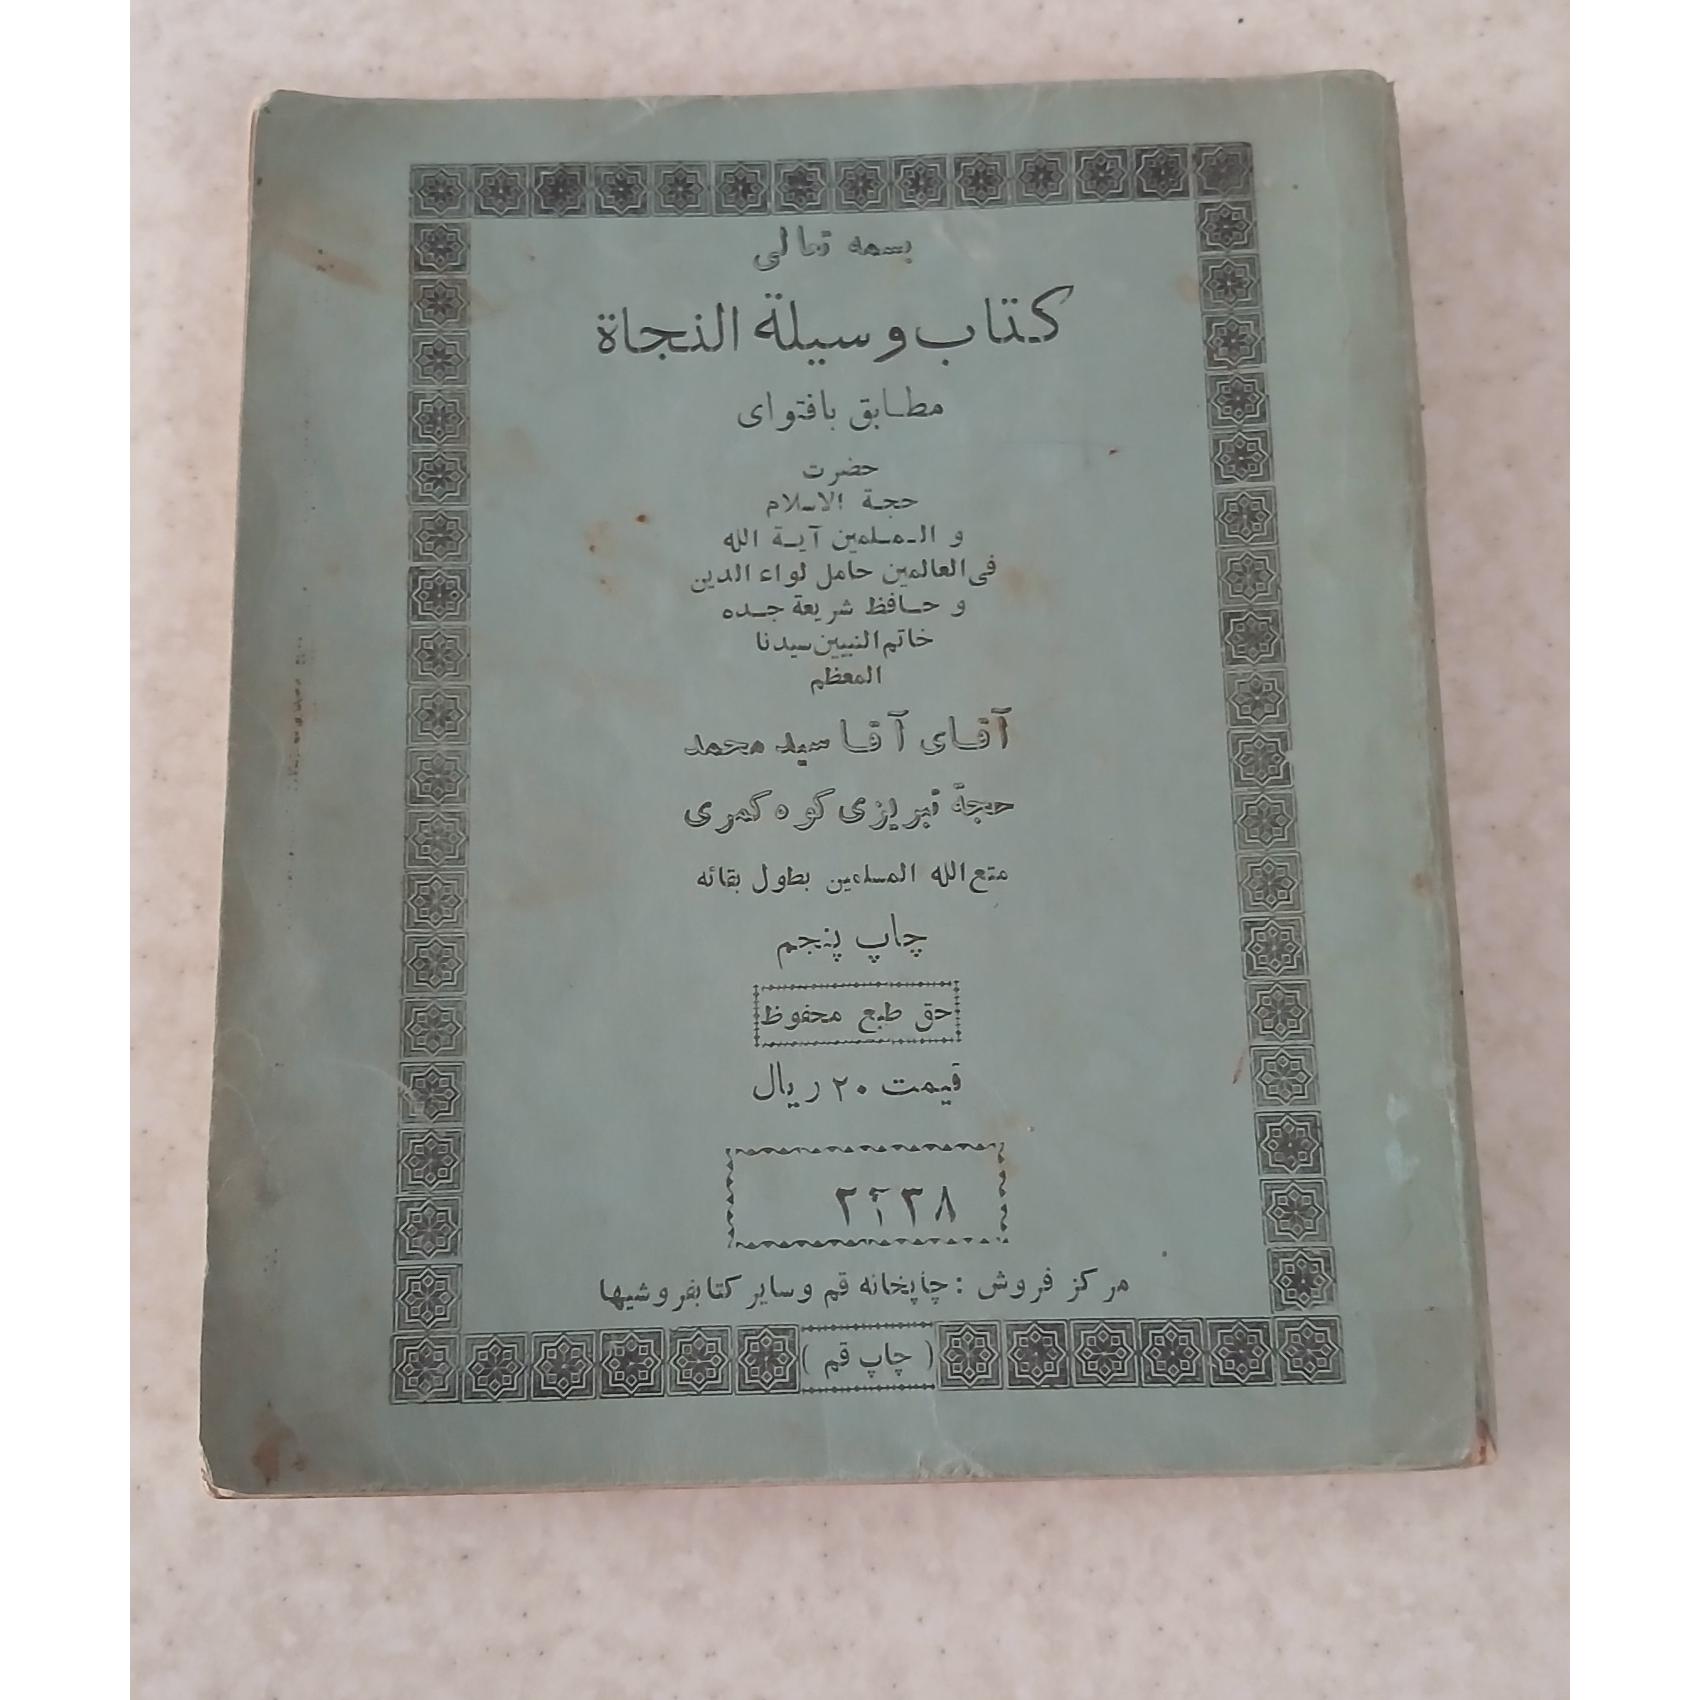 بسمه تعالی
کتاب وسیلة النجاة
مطابق بافتوای
حضرت
حجة الاسلام
و المسلمین آیة الله
فی العالمین حامل لواء الدین
و حافظ شریعة جده
خاتم النبیین سیدنا
المعظم
آقای آقا سید محمد
حجة تبریزی کوه کمری
متع الله المسلمین بطول بقائه
چاپ پنجم
حق طبع محفوظ
قیمت ۲۰ ریال
مرکز فروش : چاپخانه قم و سایر کتابفروشیها
( چاپ قم )